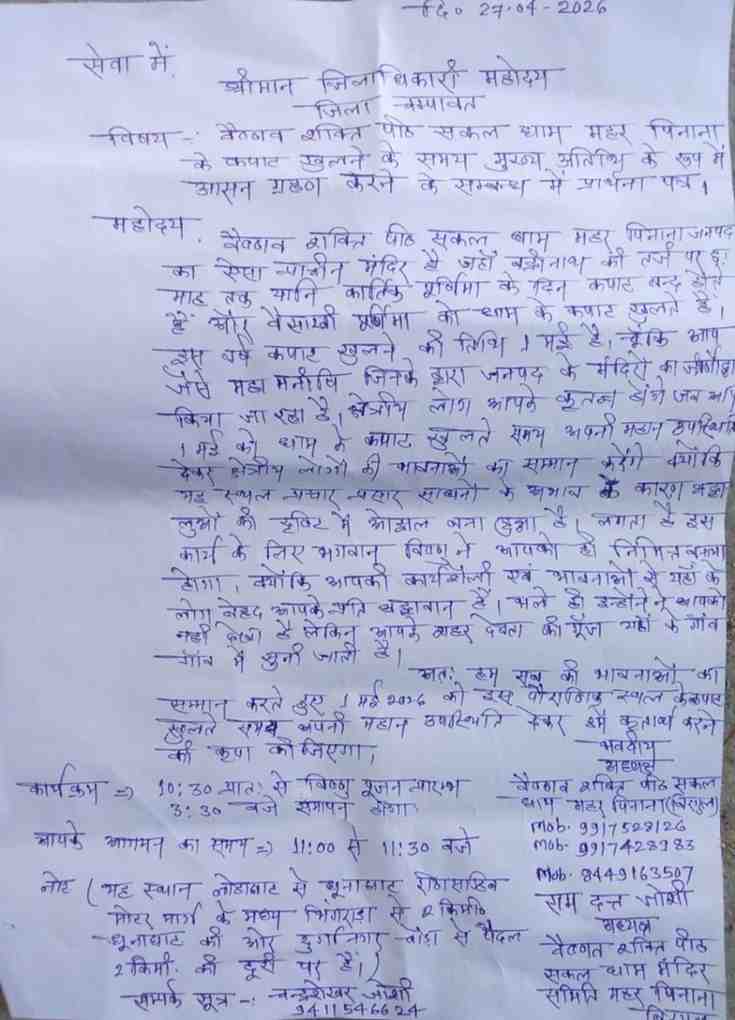 दि० 27-04-2026
सेवा में,
श्रीमान जिलाधिकारी महोदय
जिला चम्पावत
विषय -: वैष्णव शक्ति पीठ सकल धाम महर पिनाना
के कपाट खुलने के समय मुख्य अतिथि के रूप में
आसन ग्रहण करने के सम्बन्ध में प्रार्थना पत्र।
महोदय,
वैष्णव शक्ति पीठ सकल धाम महर पिनाना जनपद
का ऐसा प्राचीन मंदिर है जहाँ बद्रीनाथ की तर्ज पर छः
माह तक यानि कार्तिक पूर्णिमा के दिन कपाट बन्द होते
हैं और वैसाखी पूर्णिमा को धाम के कपाट खुलते हैं।
इस वर्ष कपाट खुलने की तिथि 1 मई है। चूँकि आप
जैसे महा मनीषि जिनके द्वारा जनपद के मंदिरों का
किया जा रहा है। क्षेत्रीय लोग आपके कृतज्ञ होंगे जब आप
1 मई को धाम के कपाट खुलते समय अपनी महान उपस्थिति
देकर क्षेत्रीय लोगों की भावनाओं का सम्मान करेंगे क्योंकि
यह स्थल प्रचार प्रसार साधनों के अभाव के कारण श्रद्धा
लुओं की दृष्टि में ओझल बना हुआ है। लगता है इस
कार्य के लिए भगवान विष्णु ने आपको ही निमित्त बनाया
होगा। क्योंकि आपकी कार्यशैली एवं भावनाओं से यहाँ के
लोग बेहद आपके प्रति श्रद्धावान हैं। भले ही इन्होंने आपको
नहीं देखा है लेकिन आपके की गूँज यहाँ के गाँव
गाँव में सुनी जाती है।
अतः हम सब की भावनाओं का
सम्मान करते हुए 1 मई 2026 को इस पौराणिक स्थल के कपाट
खुलते समय अपनी महान उपस्थिति देकर हमें कृतार्थ करने
की कृपा कीजिएगा।
भवदीय
अध्यक्ष
कार्यक्रम ⇒ 10:30 प्रातः से विष्णु पूजन प्रारम्भ
3:30 बजे समापन होगा
वैष्णव शक्ति पीठ सकल
धाम महर पिनाना
Mob. 9917528126
आपके आगमन का समय ⇒ 11:00 से 11:30 बजे
Mob. 9917428983
Mob. 8449163507
नोट (यह स्थान लोहाघाट से धूनाघाट रीठासाहिब
मोटर मार्ग के मध्य भिंगराड़ा से 2 किमी०
धूनाघाट की ओर दुर्गानगर से पैदल
2 किमी. की दूरी पर है।)
सम्पर्क सूत्र -: चन्द्रशेखर जोशी
9411546624
राम दत्त जोशी
अध्यक्ष
वैष्णव शक्ति पीठ
सकल धाम मंदिर
समिति महर पिनाना